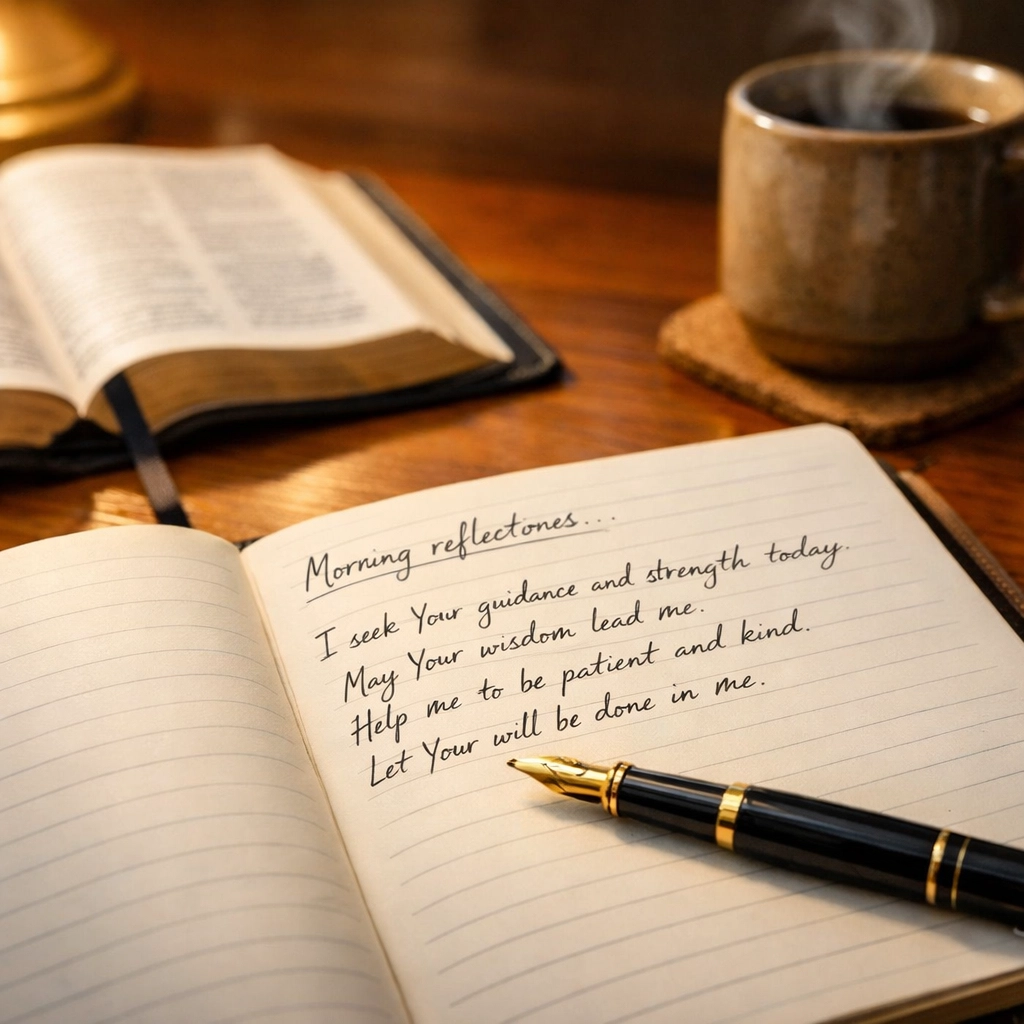 Morning reflectiones...
I seek Your guidance and strength today.
May Your wisdom lead me.
Help me to be patient and kind.
Let Your will be done in me.